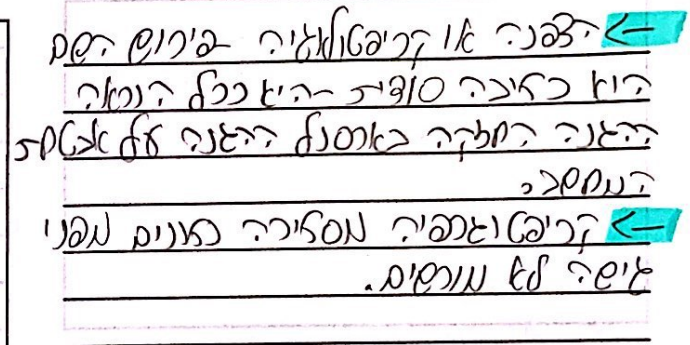 ← הצפנה או קריפטולוגיה - פירוש השם
הוא כתיבה סודית - היא ככל הנראה
ההגנה החזקה בארסנל ההגנה על אבטחת
המחשב.
← קריפטוגרפיה מסתירה נתונים מפני
גישה לא מורשים.